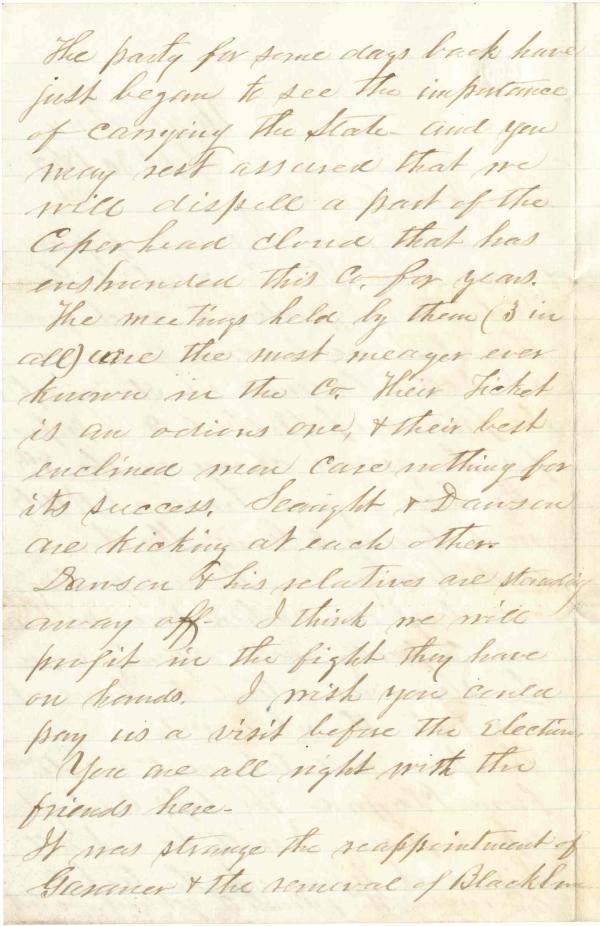 The party for some days back have
just began to see the importance
of carrying the State - and you
may rest assured that we
will dispell a part of the
Coperhead cloud that has
enshrouded this Co. for years.
The meetings held by them (3 in
all) are the most meager ever
known in the Co. Their Ticket
is an odious one, & their best
enclined men care nothing for
its success. Searight & Dawson
are kicking at each other.
Dawson & his relatives are standing
away off - I think we will
profit in the fight they have
on hands. I wish you could
pay us a visit before the Election,
You are all right with the
friends here -
It was strange the reappointment of
Gardner & the removal of